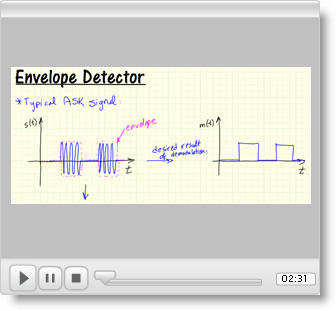 Envelope Detector
* Typical ASK signal:
s(t)
envelope
t
desired result
of demodulation:
m(t)
t
02:31